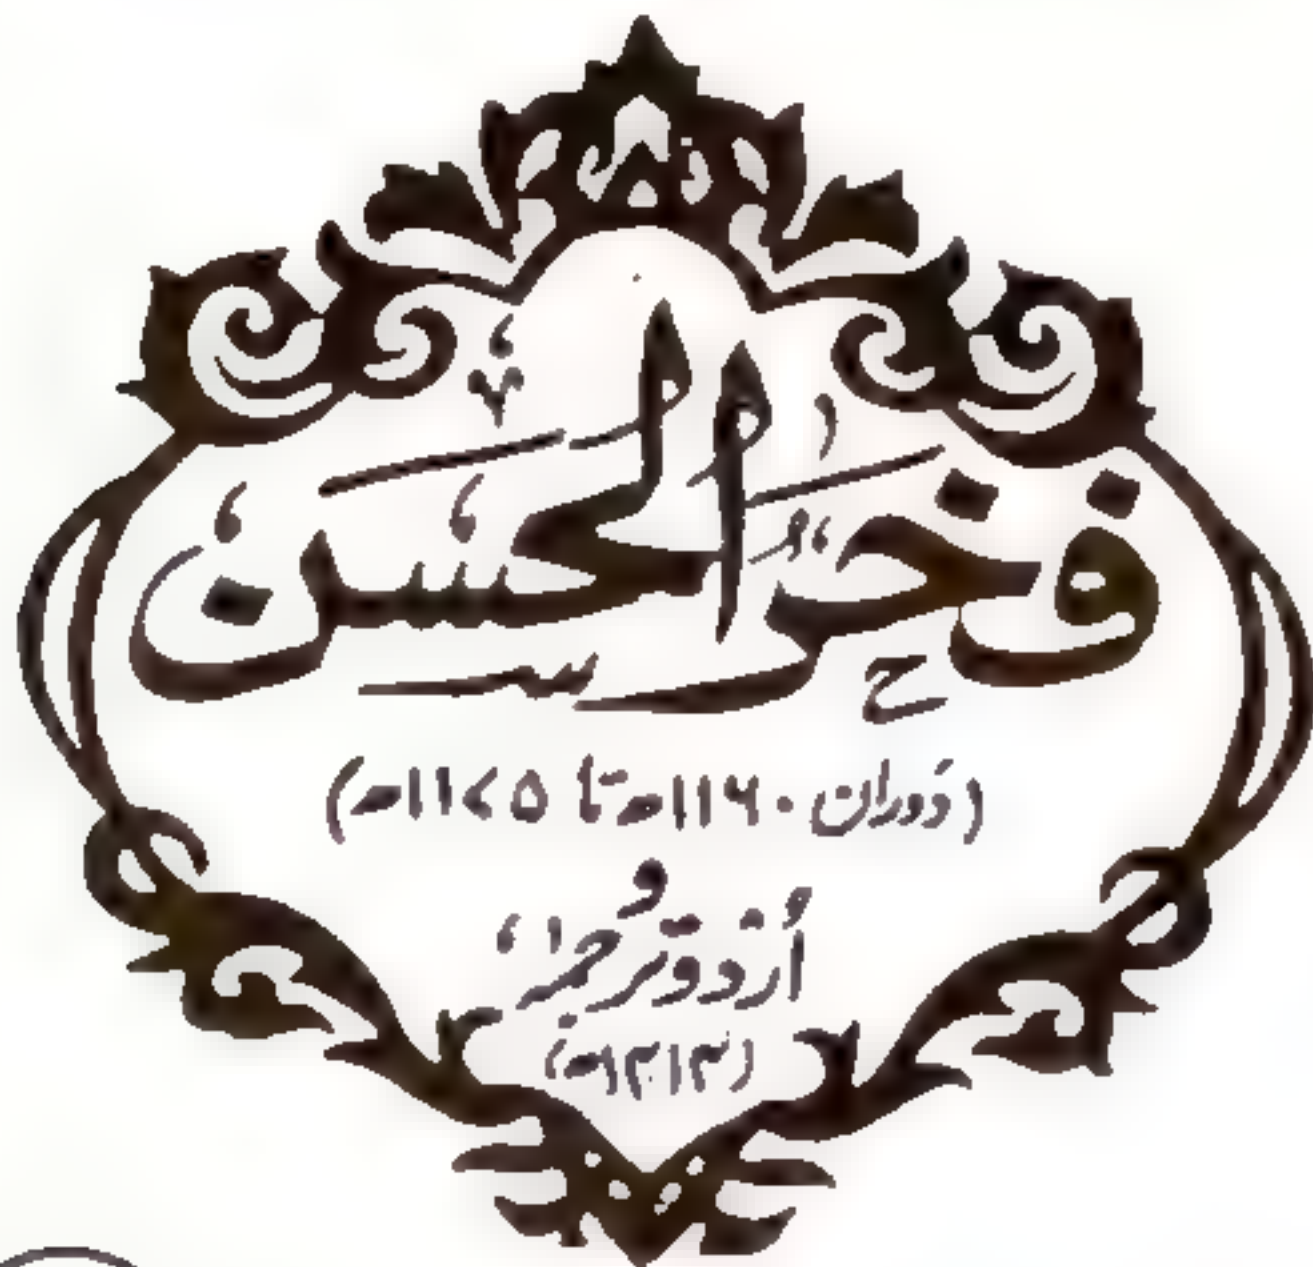 فخر الحسن
(دوران ۱۱۶۰ھ تا ۱۱۷۵ھ)
و
اُردو ترجمہ
(۱۳۱۳ھ)